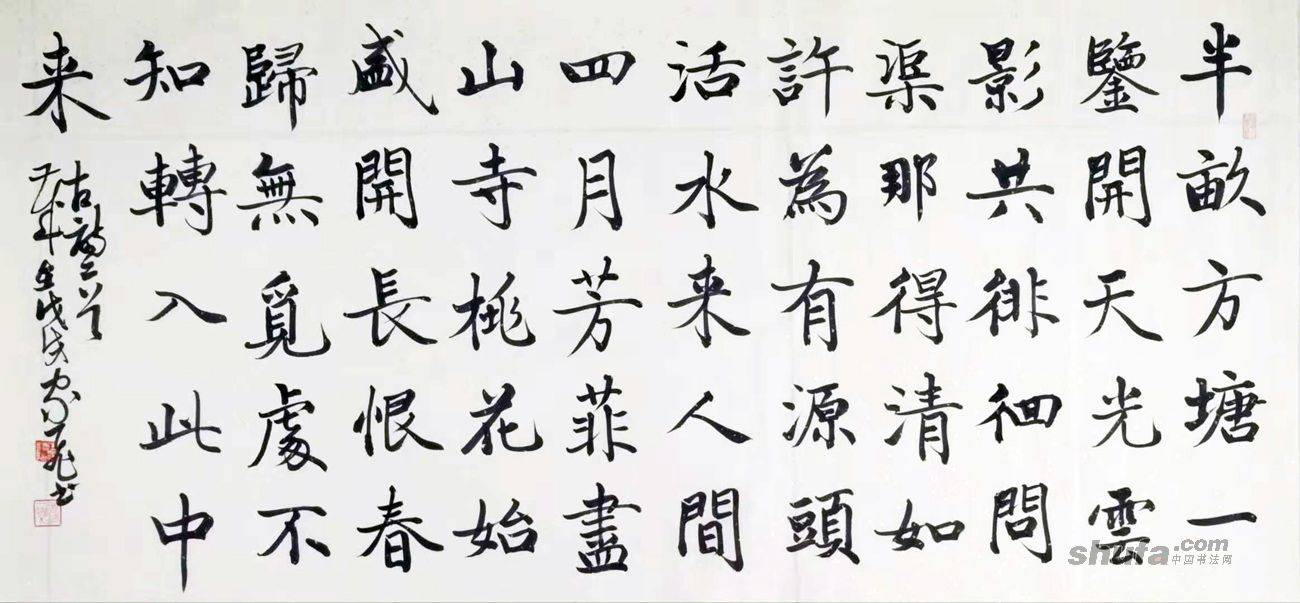 半畝方塘一
鑒開天光雲
影共徘徊問
渠那得清如
許為有源頭
活水来人間
四月芳菲盡
山寺桃花始
盛開長恨春
歸無覓處不
知轉入此中
来
古詩二首
shufa.com
中国书法网